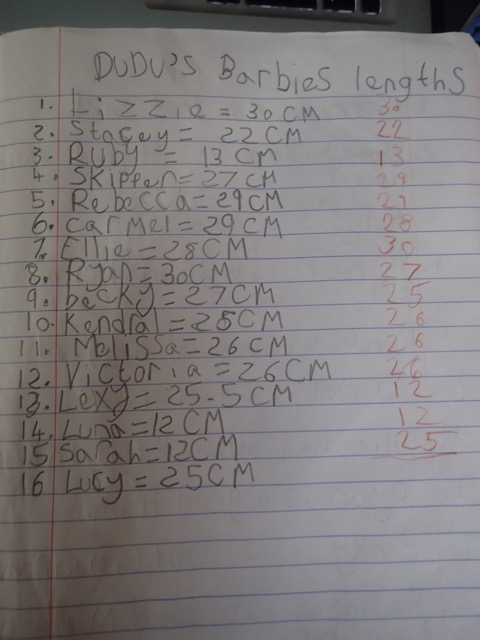 DUDU'S Barbies lengths
1. Lizzie = 30 CM 30
2. Stacey = 22 CM 22
3. RUBY = 13 CM 13
4. SKipper = 27 CM 29
5. Rebecca = 29 CM 29
6. carmel = 29 CM 28
7. Ellie = 28 CM 30
8. Ryan = 30 CM 27
9. becky = 27 CM 25
10. Kendral = 25 CM 26
11. Melissa = 26 CM 26
12. Victoria = 26 CM 26
13. Lexy = 25.5 CM 12
14. Luna = 12 CM 12
15 Sarah = 12 CM 25
16 Lucy = 25 CM